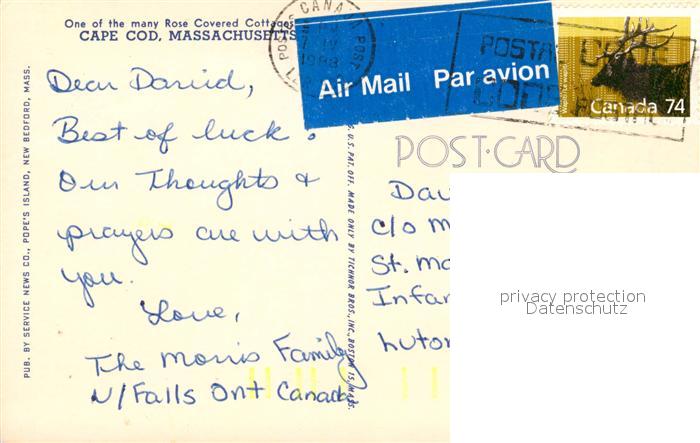 One of the many Rose Covered Cottages
CAPE COD, MASSACHUSETTS
CANADA
POST
1988
Air Mail Par avion
POSTAL CODE
Canada 74
POST CARD
Dear David,
Best of luck.
Our Thoughts &
prayers are with
you.
Love,
The Morris Family
N/Falls Ont Canada
Dav
c/o M
St. Ma
Infan
Luton
privacy protection
Datenschutz
PUB. BY SERVICE NEWS CO., POPE'S ISLAND, NEW BEDFORD, MASS.
U. S. PAT. OFF. MADE ONLY BY TICHNOR BROS., INC., BOSTON 15, MASS.